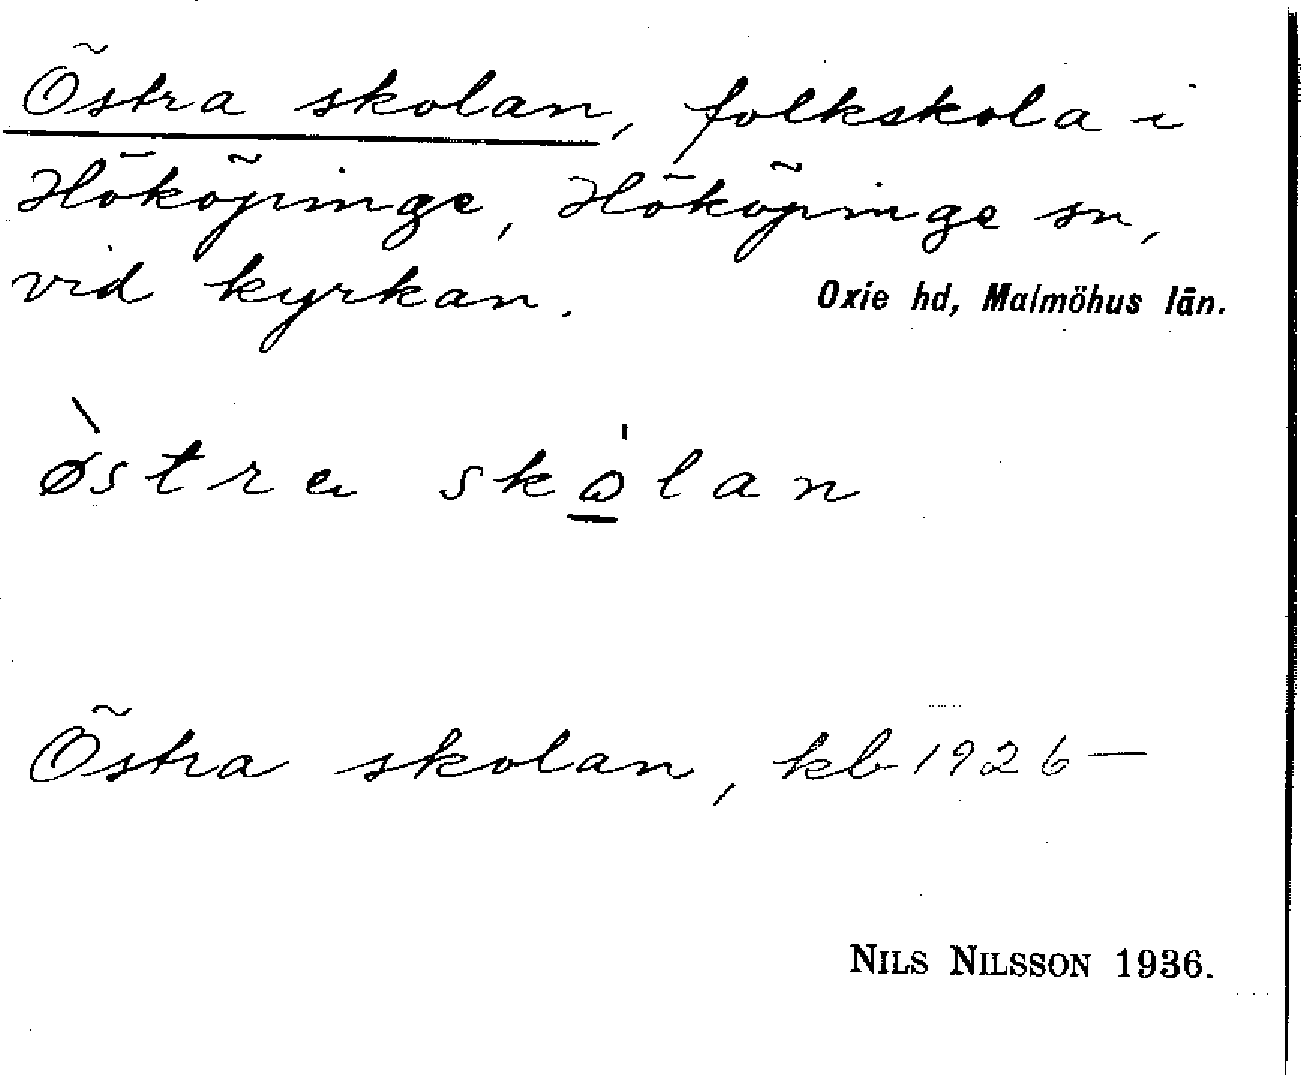 Östra skolan, folkskola i
Hököpinge, Hököpinge sn,
vid kyrkan. Oxie hd, Malmöhus län.
ø̀stra sko̲̍lan
Östra skolan, kb 1926—
NILS NILSSON 1936.